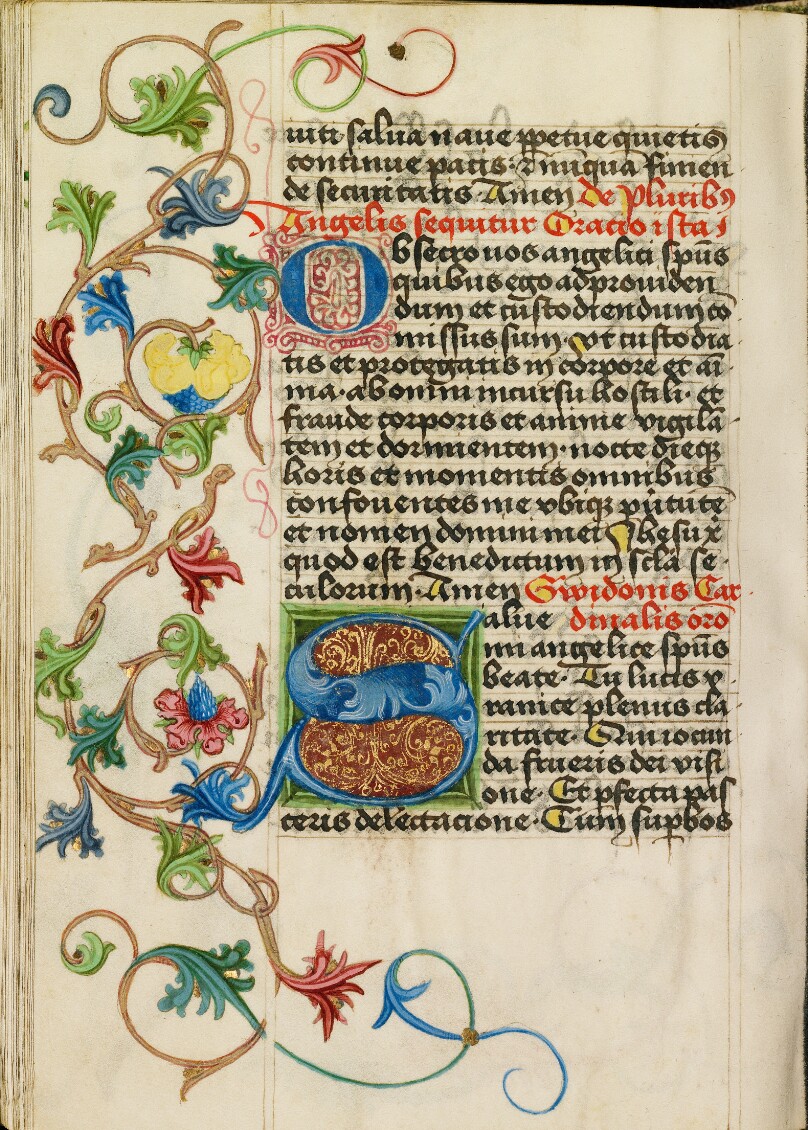 uiti salua naue ppetue quietis
continue pacis· ⁊ nūquā finien
de securitatis Amen de pluribꝰ
Angelis sequitur Oracio ista
Obsecro uos angelici spūs
quibus ego ad prouiden
dum et custodiendum cō
missus sum· vt custodia
tis et protegatis in corpore et ai
ma· ab omni incursu hostili· et
fraude corporis et anime vigilā
tem et dormientem· nocte dieqꝫ
horis et momentis omnibus
confouentes me vbiqꝫ
et nomen domini mei Jhesu xͥ
quod est benedictum in scla se
culorum· Amen Gwidonis Car
Salue dinalis oro
mi angelice spūs
beate· Tu lucis
ranice plenus cla
ritate· Qui iocun
da frueris dei visi
one· Et pfecta pas
ceris delectacione· Cum supbos